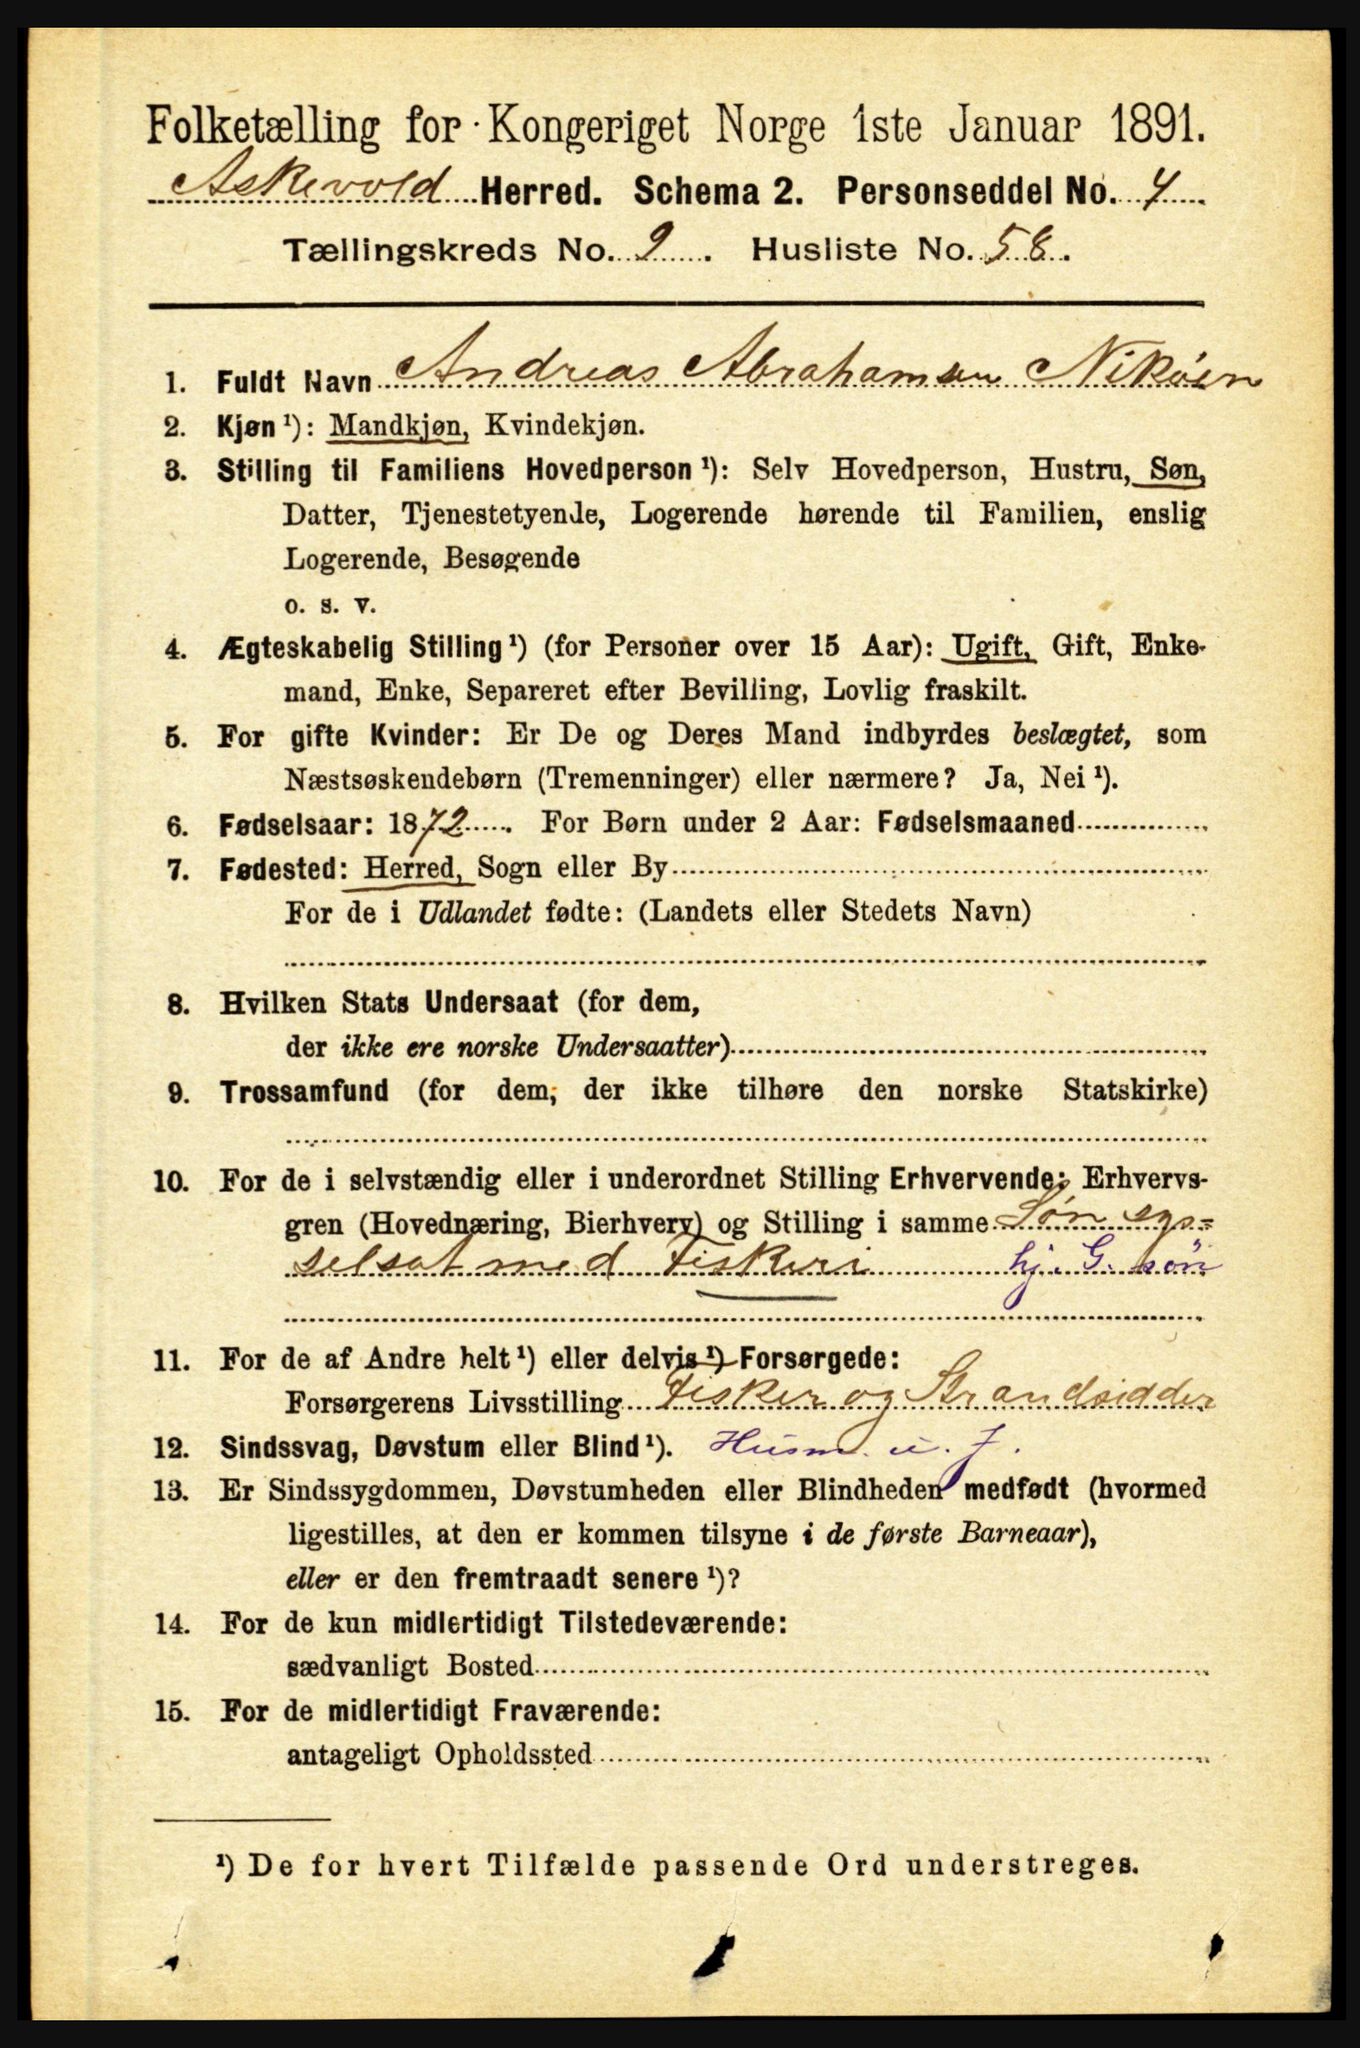 Folketælling for Kongeriget Norge 1ste Januar 1891.
Askevold Herred. Schema 2. Personseddel No. 4
Tællingskreds No. 9. Husliste No. 58.
1. Fuldt Navn Andreas Abrahamsen Nikøen
2. Kjøn ¹): Mandkjøn, Kvindekjøn.
3. Stilling til Familiens Hovedperson ¹): Selv Hovedperson, Hustru, Søn,
Datter, Tjenestetyende, Logerende hørende til Familien, enslig
Logerende, Besøgende
o. s. v.
4. Ægteskabelig Stilling ¹) (for Personer over 15 Aar): Ugift, Gift, Enke-
mand, Enke, Separeret efter Bevilling, Lovlig fraskilt.
5. For gifte Kvinder: Er De og Deres Mand indbyrdes beslægtet, som
Næstsøskendebørn (Tremenninger) eller nærmere? Ja, Nei ¹).
6. Fødselsaar: 1872. For Børn under 2 Aar: Fødselsmaaned
7. Fødested: Herred, Sogn eller By
For de i Udlandet fødte: (Landets eller Stedets Navn)
8. Hvilken Stats Undersaat (for dem,
der ikke ere norske Undersaatter)
9. Trossamfund (for dem, der ikke tilhøre den norske Statskirke)
10. For de i selvstændig eller i underordnet Stilling Erhvervende: Erhvervs-
gren (Hovednæring, Bierhverv) og Stilling i samme Søn sys=
selsat med Fiskeri hj. G. søn
11. For de af Andre helt ¹) eller delvis ¹) Forsørgede:
Forsørgerens Livsstilling Fisker og Strandsidder
12. Sindssvag, Døvstum eller Blind ¹). Husm. u. J.
13. Er Sindssygdommen, Døvstumheden eller Blindheden medfødt (hvormed
ligestilles, at den er kommen tilsyne i de første Barneaar),
eller er den fremtraadt senere ¹)?
14. For de kun midlertidigt Tilstedeværende:
sædvanligt Bosted
15. For de midlertidigt Fraværende:
antageligt Opholdssted
¹) De for hvert Tilfælde passende Ord understreges.